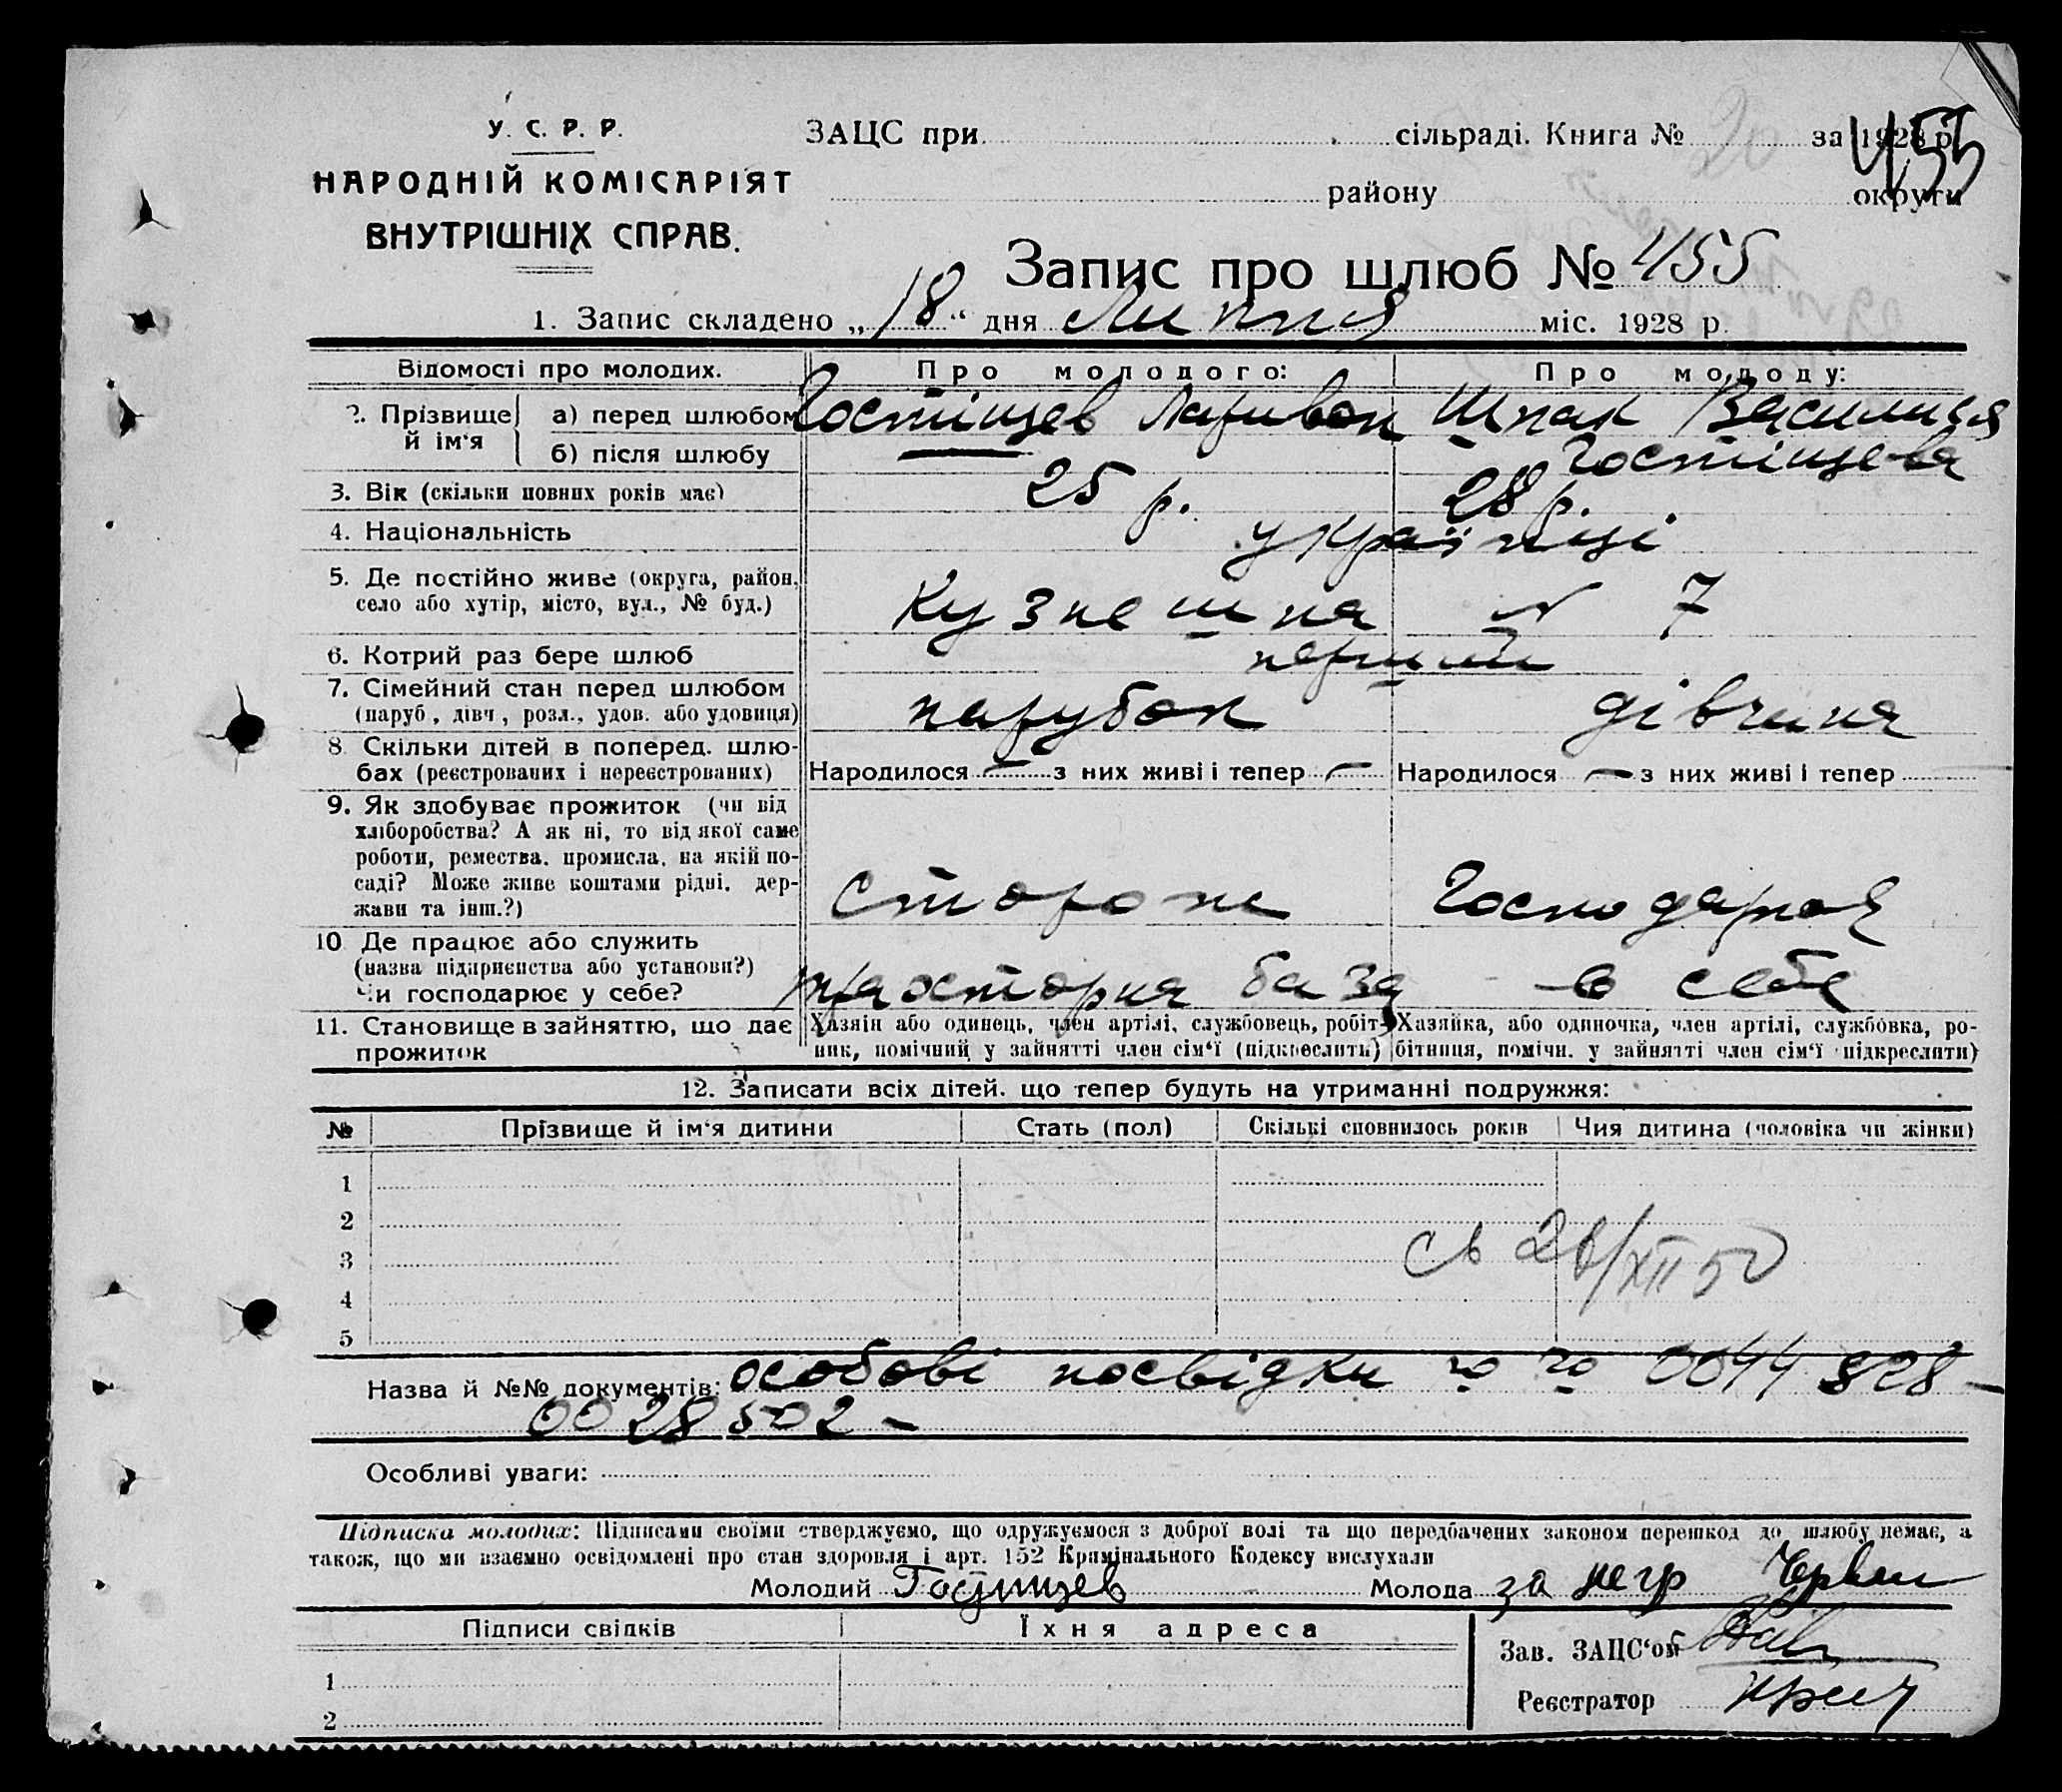 У. С. Р. Р.
НАРОДНІЙ КОМІСАРІЯТ
ВНУТРІШНІХ СПРАВ.
ЗАЦС при сільраді. Книга № 20 за 1928 р.
455
району округи
Запис про шлюб № 455
1. Запис складено „18“ дня Липня міс. 1928 р.
Відомості про молодих. Про молодого: Про молоду:
2. Прізвище й ім‘я а) перед шлюбом Гостіщев Ларивон Шпак Василина
б) після шлюбу Гостіщева
3. Вік (скільки повних років має) 25 р. 28 р.
4. Національність українці
5. Де постійно живе (округа, район,
село або хутір, місто, вул., № буд.) Кузнешна № 7
6. Котрий раз бере шлюб перший
7. Сімейний стан перед шлюбом
(паруб., дівч., розл., удов. або удовиця) парубок дівчина
8. Скільки дітей в поперед. шлю-
бах (реєстрованих і нереєстрованих) Народилося — з них живі і тепер — Народилося — з них живі і тепер
9. Як здобуває прожиток (чи від
хліборобства? А як ні, то від якої саме
роботи, ремества, промисла, на якій по-
саді? Може живе коштами рідні, дер-
жави та інш.?) Стороже Господарюя
10. Де працює або служить
(назва підприєнства або установи?)
Чи господарює у себе? база в себе
11. Становище в зайняттю, що дає
прожиток
Хазяїн або одинець, член артілі, службовець, робіт-
ник, помічний у зайнятті член сім‘ї (підкреслити)
Хазяйка, або одиночка, член артілі, службовка, ро-
бітниця, помічн. у зайнятті член сім‘ї підкреслити)
12. Записати всіх дітей, що тепер будуть на утриманні подружжя:
№ Прізвище й ім‘я дитини Стать (пол) Скількі сповнилось років Чия дитина (чоловіка чи жінки)
1
2
3
4
5
XII 50
Назва й №№ документів: особові посвідки 0044 828 —
0028502 —
Особливі уваги:
Підписка молодих: Підписами своїми стверджуємо, що одружуємося з доброї волі та що передбачених законом перешкод до шлюбу немає, а
також, що ми взаємно освідомлені про стан здоровля і арт. 152 Кримінального Кодексу вислухали
Молодий Гостищев Молода за негр
Підписи свідків Їхня адреса
Зав. ЗАЦС‘ом
Реєстратор
1
2